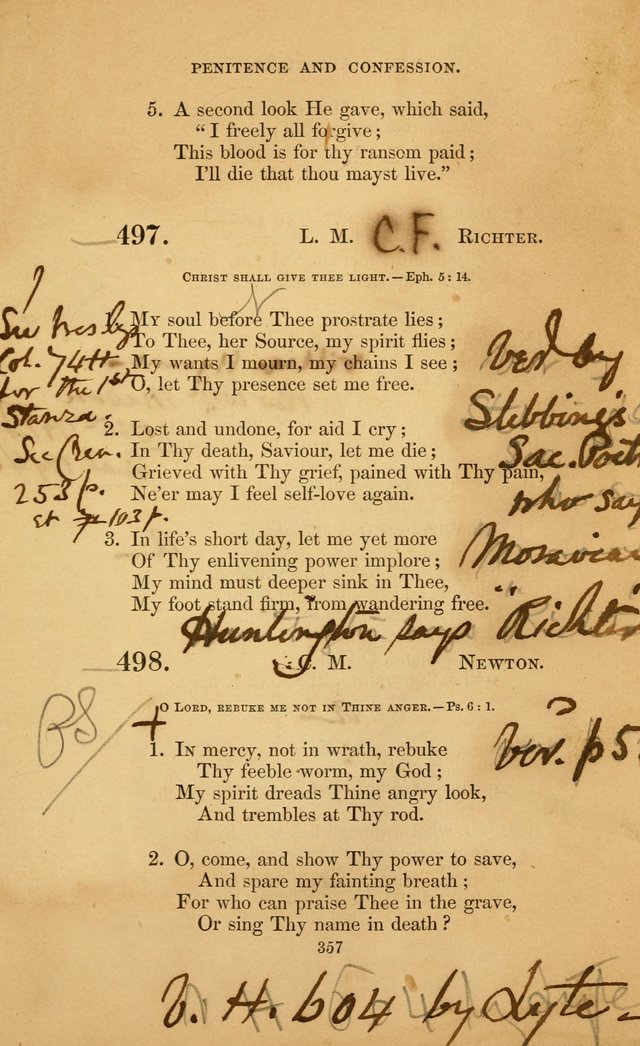 PENITENCE AND CONFESSION.
5. A second look He gave, which said,
“ I freely all forgive;
This blood is for thy ransom paid;
I'll die that thou mayst live.”
497. L. M. C.F. RICHTER.
CHRIST SHALL GIVE THEE LIGHT.—Eph. 5 : 14.
1. MY soul before Thee prostrate lies;
To Thee, her Source, my spirit flies;
My wants I mourn, my chains I see;
O, let Thy presence set me free.
See
Col. 74
for the 1st
Stanza.
See
253 p.
et 103 p.
2. Lost and undone, for aid I cry;
In Thy death, Saviour, let me die;
Grieved with Thy grief, pained with Thy pain,
Ne'er may I feel self-love again.
Ver by
Stebbing's
Sac. Poet
who say
Moravian
3. In life's short day, let me yet more
Of Thy enlivening power implore;
My mind must deeper sink in Thee,
My foot stand firm, from wandering free.
Huntington says "Richter
498. C. M. NEWTON.
O LORD, REBUKE ME NOT IN THINE ANGER.—Ps. 6 : 1.
1. IN mercy, not in wrath, rebuke
Thy feeble worm, my God;
My spirit dreads Thine angry look,
And trembles at Thy rod.
?
Ver. p 5
2. O, come, and show Thy power to save,
And spare my fainting breath;
For who can praise Thee in the grave,
Or sing Thy name in death?
357
V. H. 604 by Lyte-